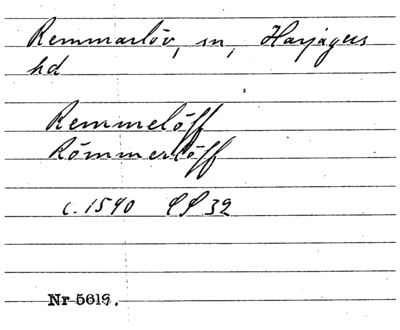 Remmarlöv, sn, Harjagers
hd
Remmelöff
Römmerlöff
c. 1590 LL 32
Nr 5619.